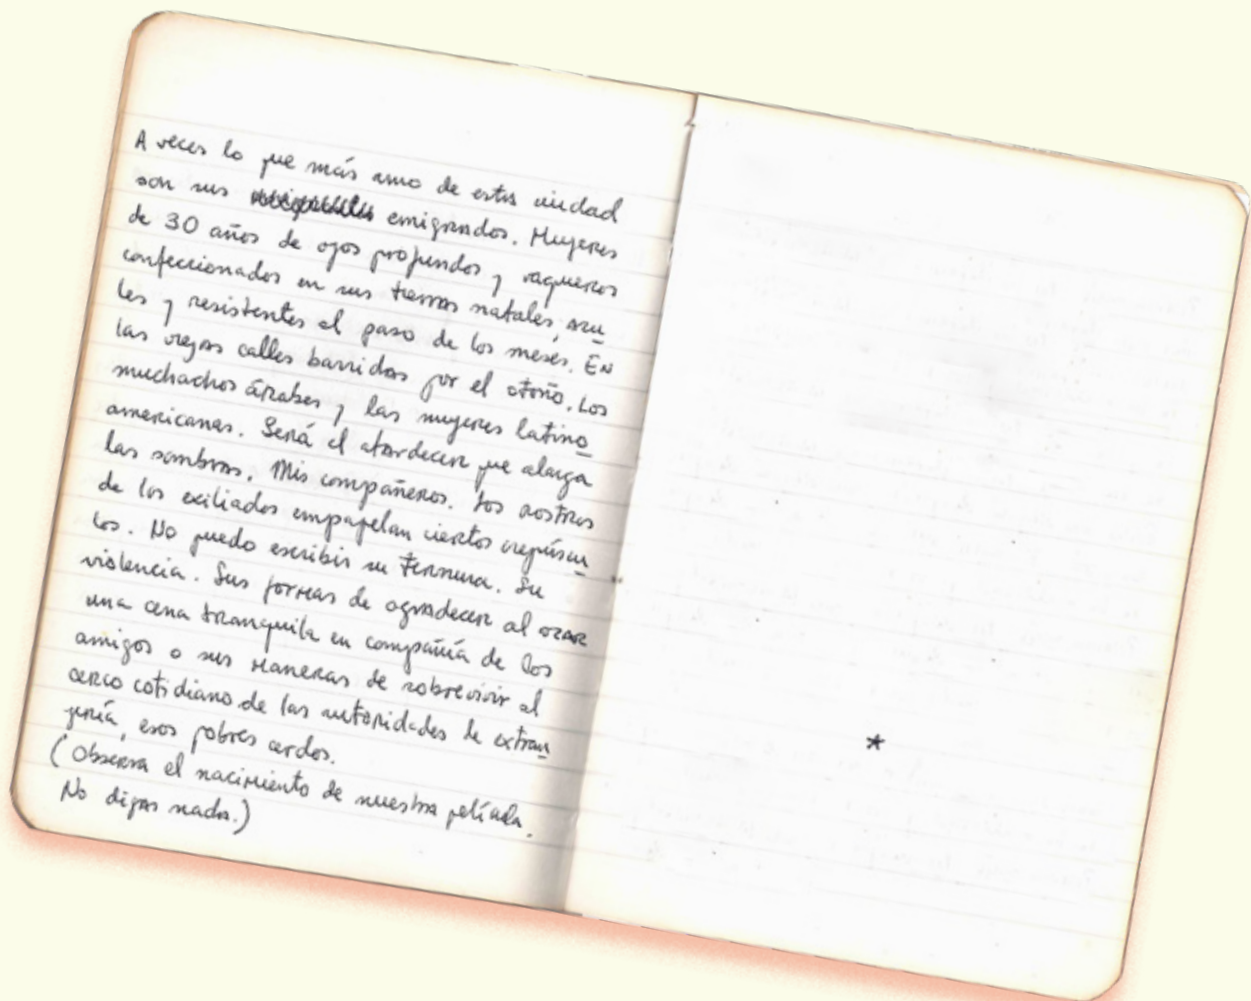 A veces lo que más amo de esta ciudad
son sus emigrados. Mujeres
de 30 años de ojos profundos y vaqueros
confeccionados en sus tierras natales, azu
les y resistentes al paso de los meses. En
las viejas calles barridas por el otoño. Los
muchachos árabes y las mujeres latino
americanas. Será el atardecer que alarga
las sombras. Mis compañeros. Los rostros
de los exiliados empapelan ciertos crepúscu
los. No puedo escribir su ternura. Su
violencia. Sus formas de agradecer al azar
una cena tranquila en compañía de los
amigos o sus maneras de sobrevivir al
cerco cotidiano de las autoridades de extran
jería, esos pobres cerdos.
(Observa el nacimiento de nuestra película.
No digas nada.)
*